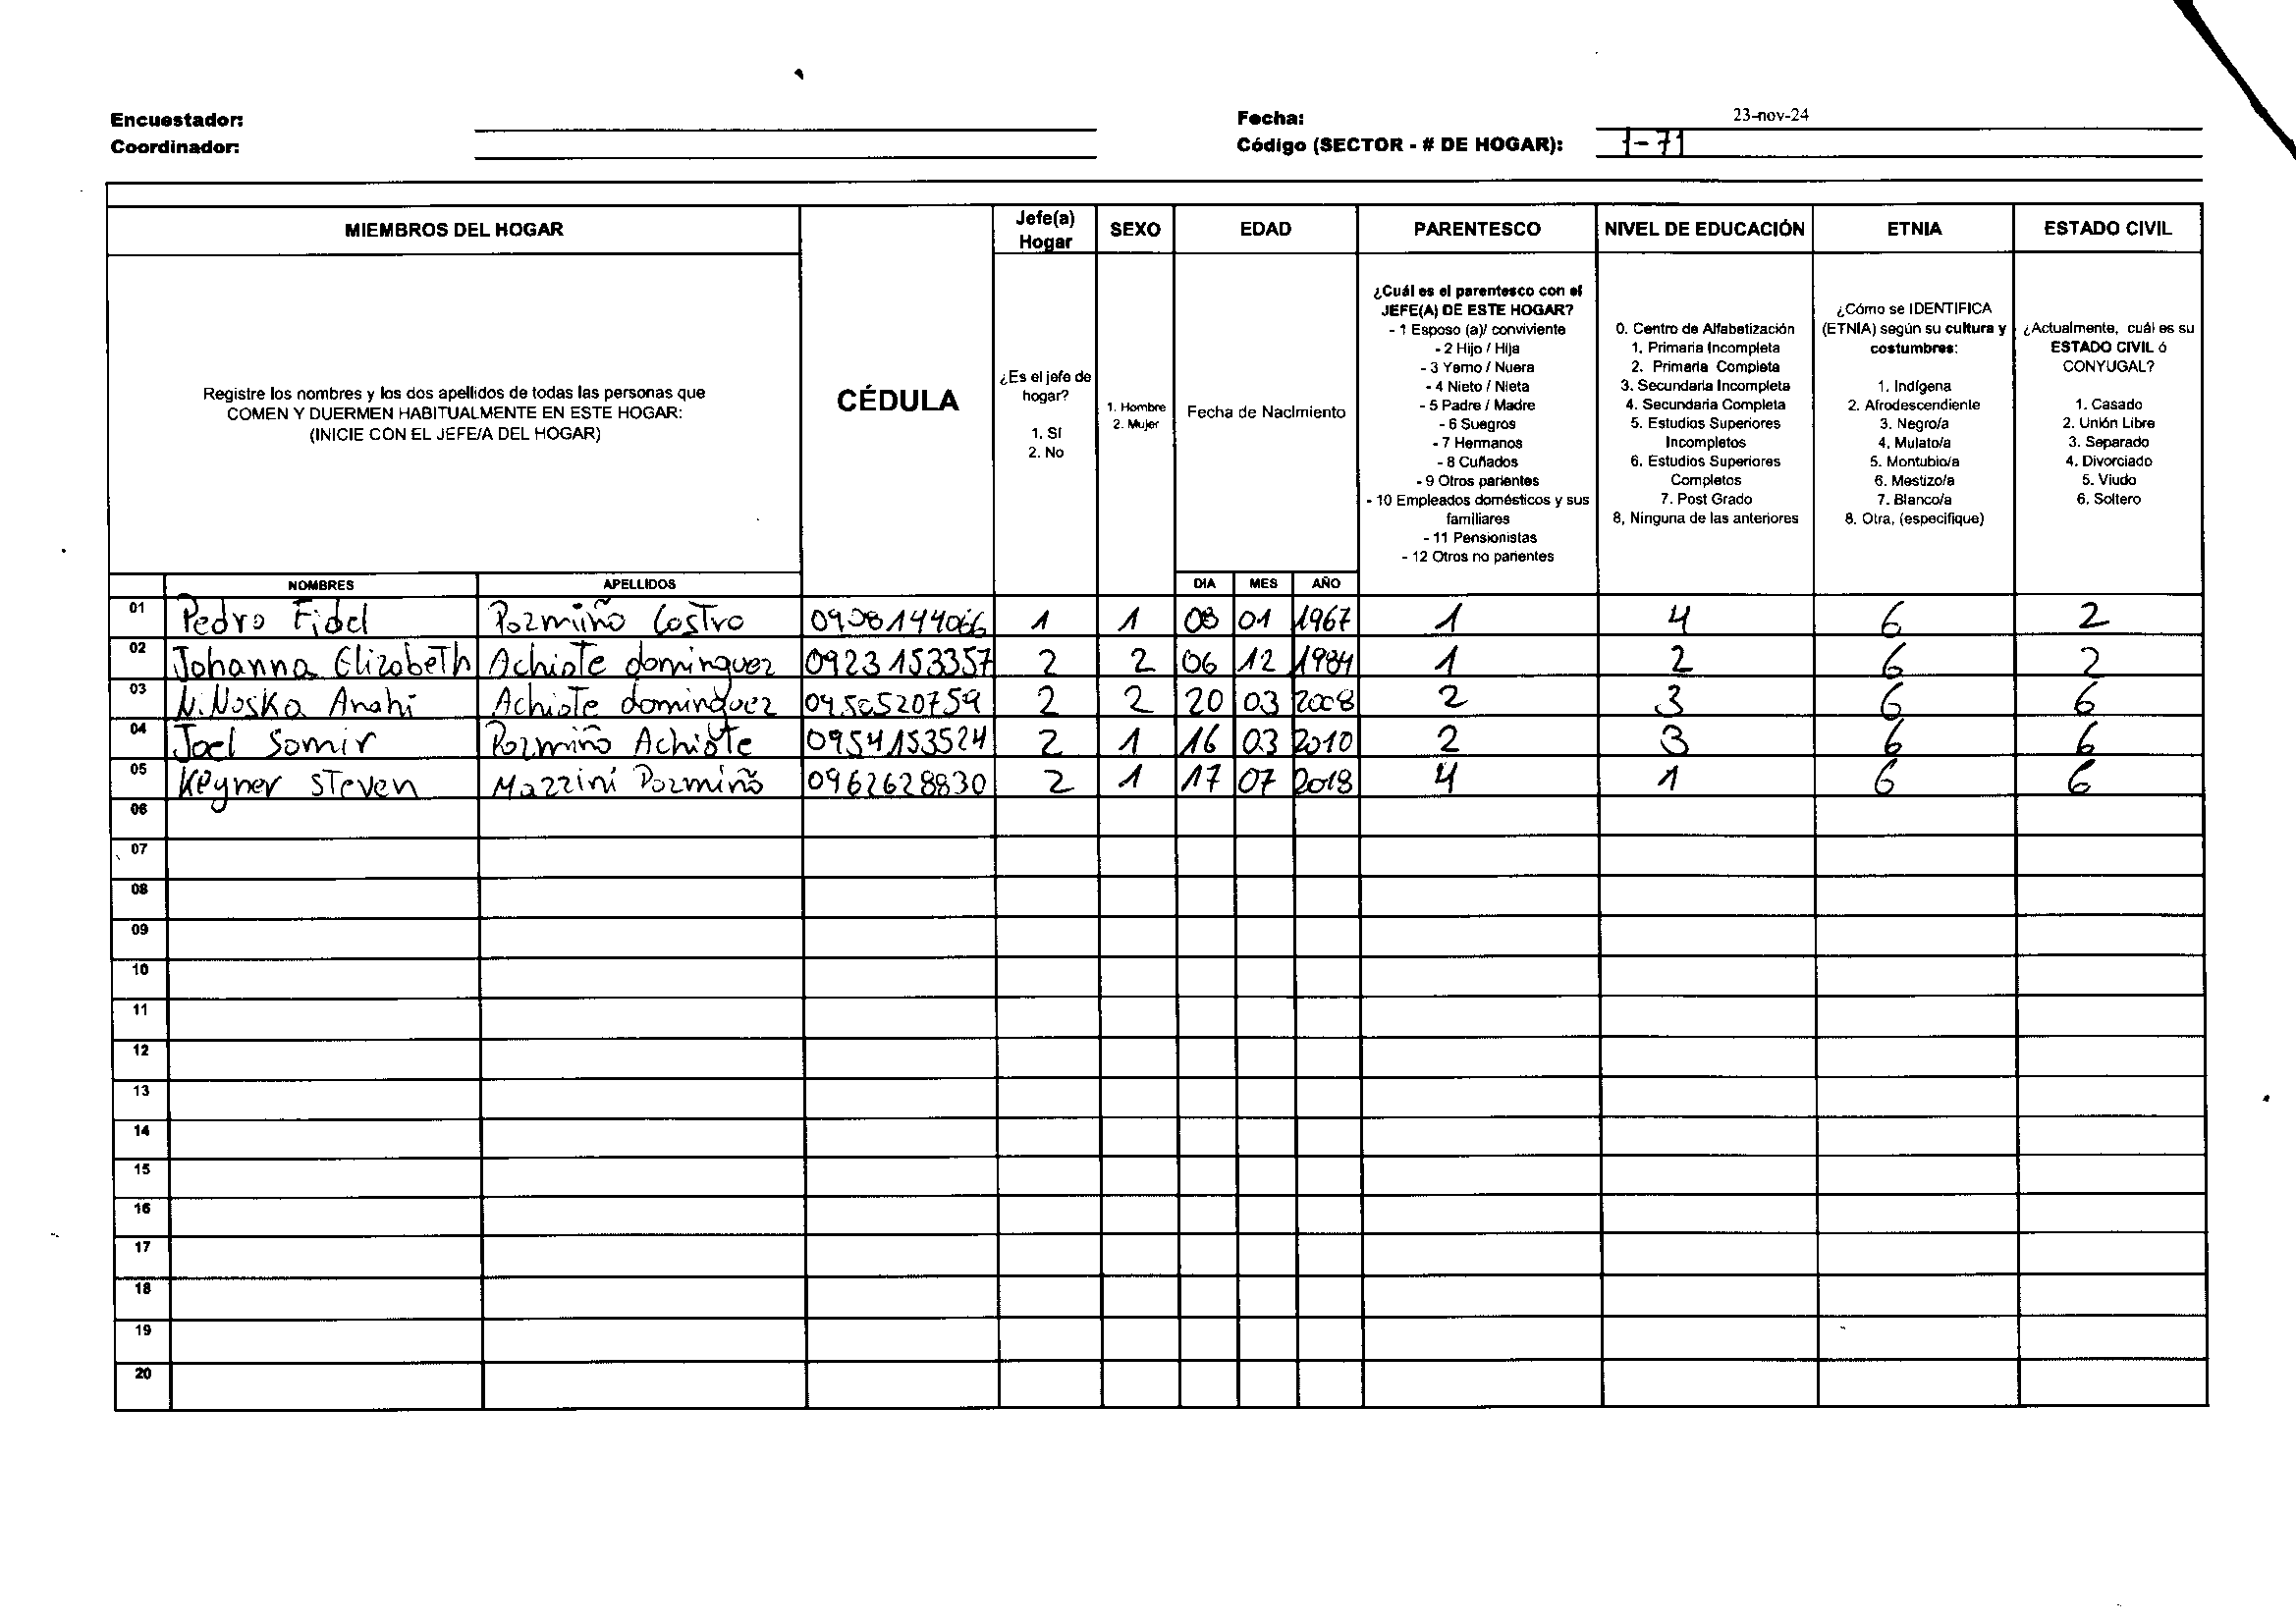 Encuestador:
Coordinador:
Fecha: 23-nov-24
Código (SECTOR - # DE HOGAR): 1-71
MIEMBROS DEL HOGAR
Registre los nombres y los dos apellidos de todas las personas que
COMEN Y DUERMEN HABITUALMENTE EN ESTE HOGAR:
(INICIE CON EL JEFE/A DEL HOGAR)
NOMBRES APELLIDOS
CÉDULA
Jefe(a)
Hogar
¿Es el jefe de
hogar?
1. Sí
2. No
SEXO
1. Hombre
2. Mujer
EDAD
Fecha de Nacimiento
DIA MES AÑO
PARENTESCO
¿Cuál es el parentesco con el
JEFE(A) DE ESTE HOGAR?
- 1 Esposo (a)/ conviviente
- 2 Hijo / Hija
- 3 Yerno / Nuera
- 4 Nieto / Nieta
- 5 Padre / Madre
- 6 Suegros
- 7 Hermanos
- 8 Cuñados
- 9 Otros parientes
- 10 Empleados domésticos y sus
familiares
- 11 Pensionistas
- 12 Otros no parientes
NIVEL DE EDUCACIÓN
0. Centro de Alfabetización
1. Primaria Incompleta
2. Primaria Completa
3. Secundaria Incompleta
4. Secundaria Completa
5. Estudios Superiores
Incompletos
6. Estudios Superiores
Completos
7. Post Grado
8. Ninguna de las anteriores
ETNIA
¿Cómo se IDENTIFICA
(ETNIA) según su cultura y
costumbres:
1. Indígena
2. Afrodescendiente
3. Negro/a
4. Mulato/a
5. Montubio/a
6. Mestizo/a
7. Blanco/a
8. Otra, (especifique)
ESTADO CIVIL
¿Actualmente, cuál es su
ESTADO CIVIL ó
CONYUGAL?
1. Casado
2. Unión Libre
3. Separado
4. Divorciado
5. Viudo
6. Soltero
01 Pedro Fidel Pozmiño Castro 1 1 08 01 1967 1 4 6 2
02 Johanna Elizabeth Achiote dominguez 0923153357 2 2 06 12 1984 1 2 6 2
03 Anahi Achiote dominguez 0950520759 2 2 20 03 2008 2 3 6 6
04 Joel Somir Pozmiño Achiote 0954153524 2 1 16 03 2010 2 3 6 6
05 Keyner Steven Mazzini Pozmiño 0962628830 2 1 17 07 2018 4 1 6 6
06
07
08
09
10
11
12
13
14
15
16
17
18
19
20